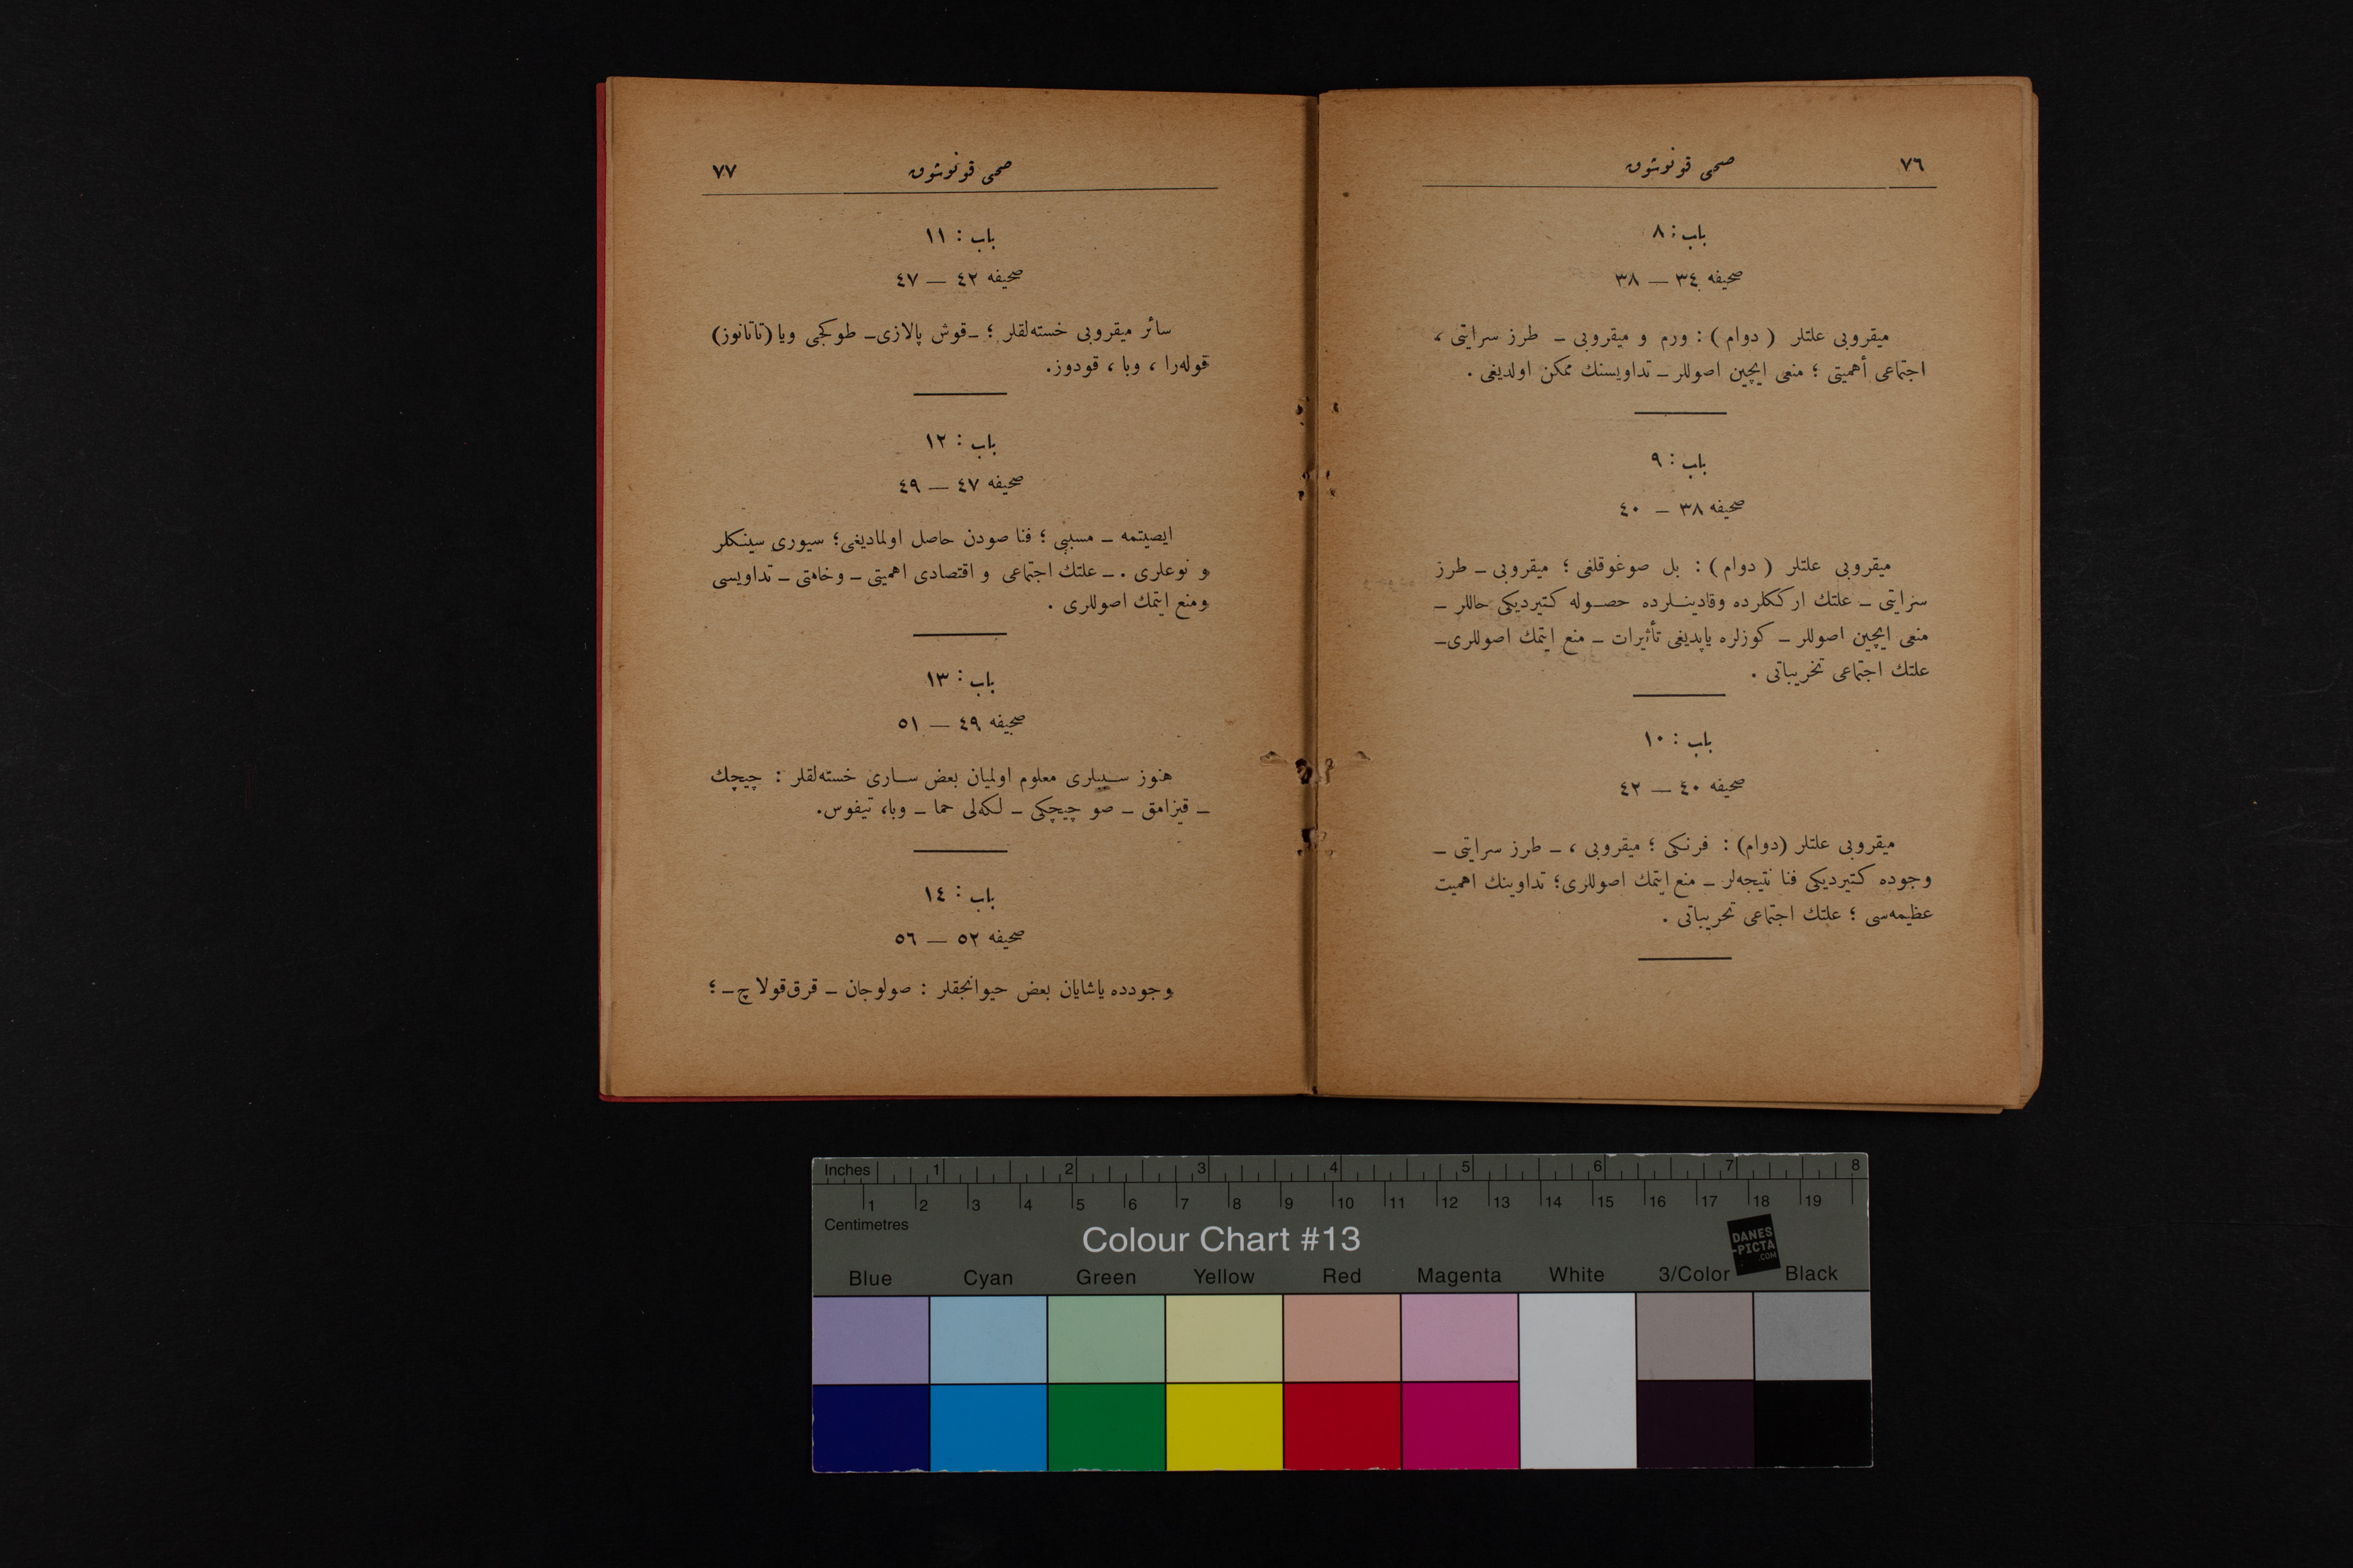 ٧٦
صحی قونوشوق
باب : ٨
صحیفه ٣٤ — ٣٨
میقروبی علتلر ( دوام ) : ورم و میقروبی ـ طرز سرایتی ،
اجتماعی أهمیتی ؛ منعی ایچین اصوللر ـ تداویسنك ممكن اولدیغی .
باب : ٩
صحیفه ٣٨ — ٤٠
میقروبی علتلر ( دوام ) : بل صوغوقلغی ؛ میقروبی ـ طرز
سرایتی ـ علتك ارككلرده وقادینلرده حصوله كتیردیكی حاللر ـ
منعی ایچین اصوللر ـ كوزلره یاپدیغی تأثیرات ـ منع ایتمك اصوللری ـ
علتك اجتماعی تخریباتی .
باب : ١٠
صحیفه ٤٠ — ٤٢
میقروبی علتلر (دوام) : فرنكی ؛ میقروبی ، ـ طرز سرایتی ـ
وجوده كتیردیكی فنا نتیجه‌لر ـ منع ایتمك اصوللری؛ تداوینك اهمیت
عظیمه‌سی ؛ علتك اجتماعی تخریباتی .
صحی قونوشوق
٧٧
باب : ١١
صحیفه ٤٢ — ٤٧
سائر میقروبی خسته‌لقلر ؛ ـ قوش پالازی ـ طوكجی ویا (تاتانوز)
قوله‌را ، وبا ، قودوز.
باب : ١٢
صحیفه ٤٧ — ٤٩
ایصیتمه ـ مسببی ؛ فنا صودن حاصل اولمادیغی؛ سیوری سینكلر
و نوعلری . ـ علتك اجتماعی و اقتصادی اهمیتی ـ وخامتی ـ تداویسی
ومنع ایتمك اصوللری .
باب : ١٣
صحیفه ٤٩ — ٥١
هنوز سببلری معلوم اولمیان بعض ساری خسته‌لقلر : چیچك
ـ قیزامق ـ صو چیچكی ـ لكه‌لی حما ـ وبا، تیفوس.
باب : ١٤
صحیفه ٥٢ — ٥٦
وجودده یاشایان بعض حیوانجقلر : صولوجان ـ قرق‌قولاچ ـ ؛
Inches 1 2 3 4 5 6 7 8
1 2 3 4 5 6 7 8 9 10 11 12 13 14 15 16 17 18 19
Centimetres
Colour Chart #13
DANES
-PICTA
.COM
Blue Cyan Green Yellow Red Magenta White 3/Color Black